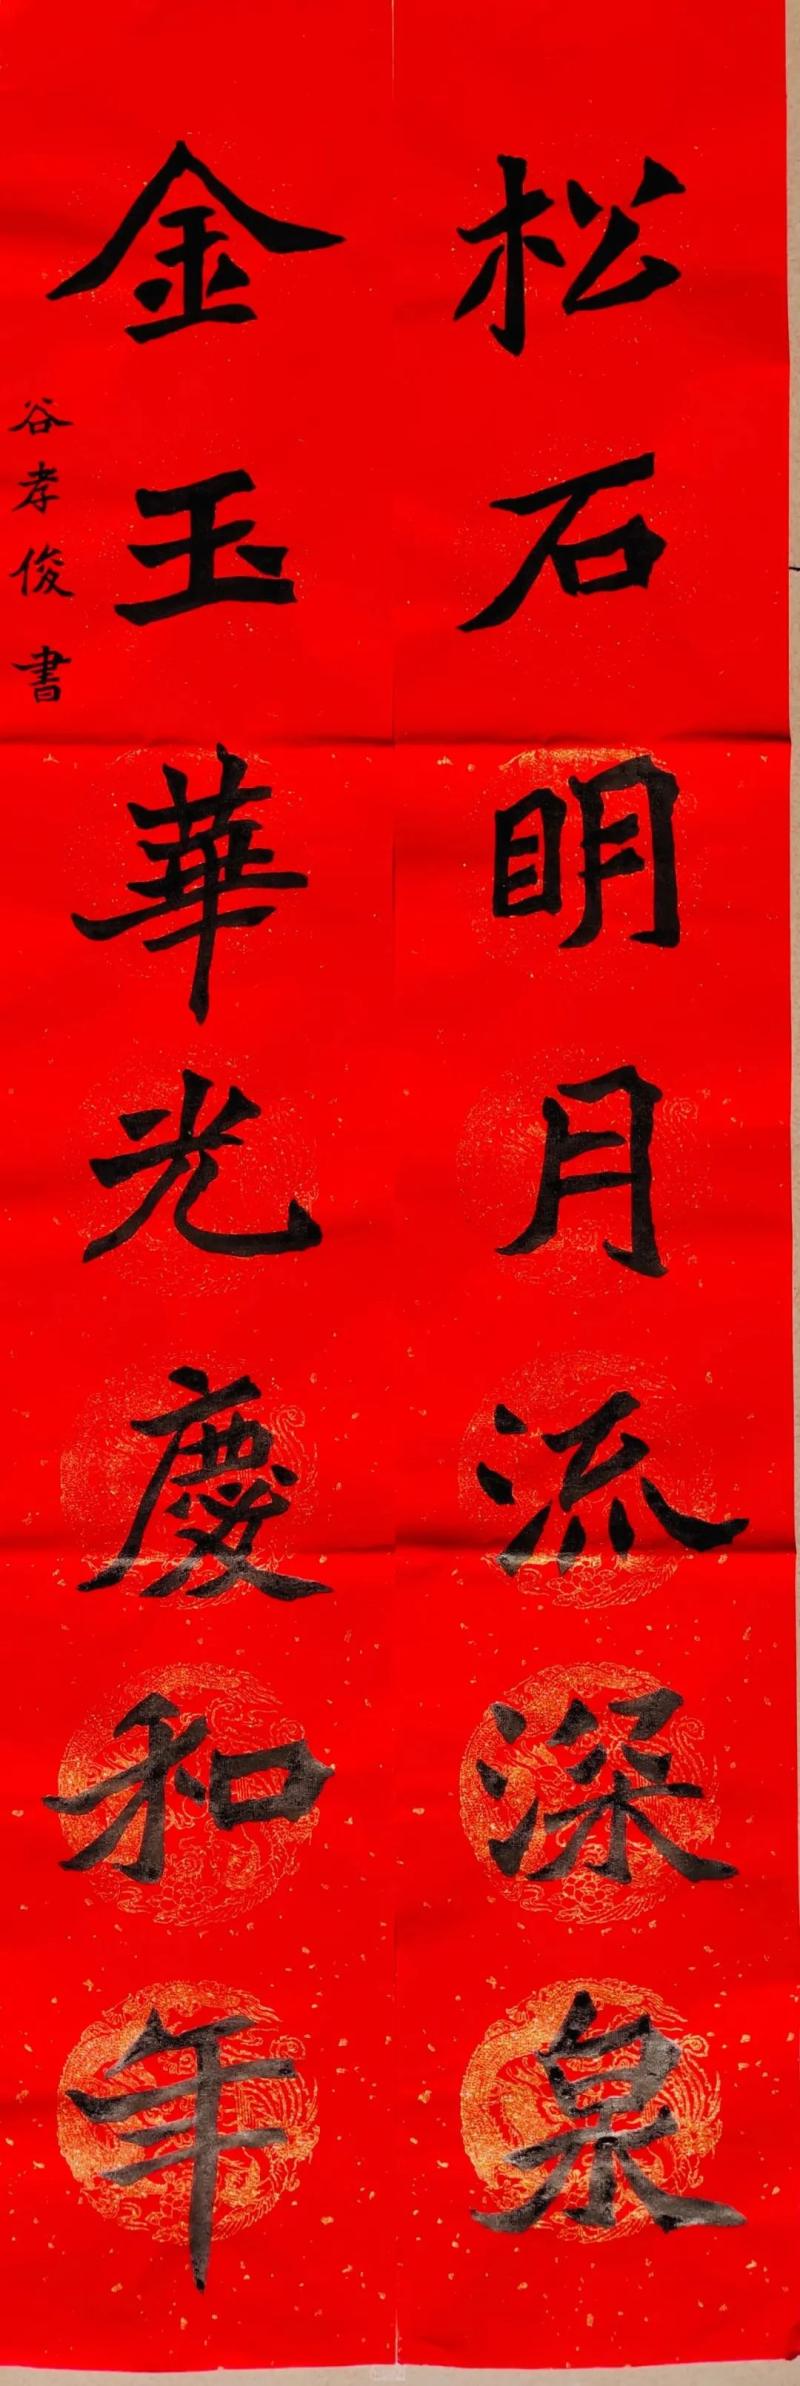 松石明月流深泉
金玉華光慶和年
谷孝俊書